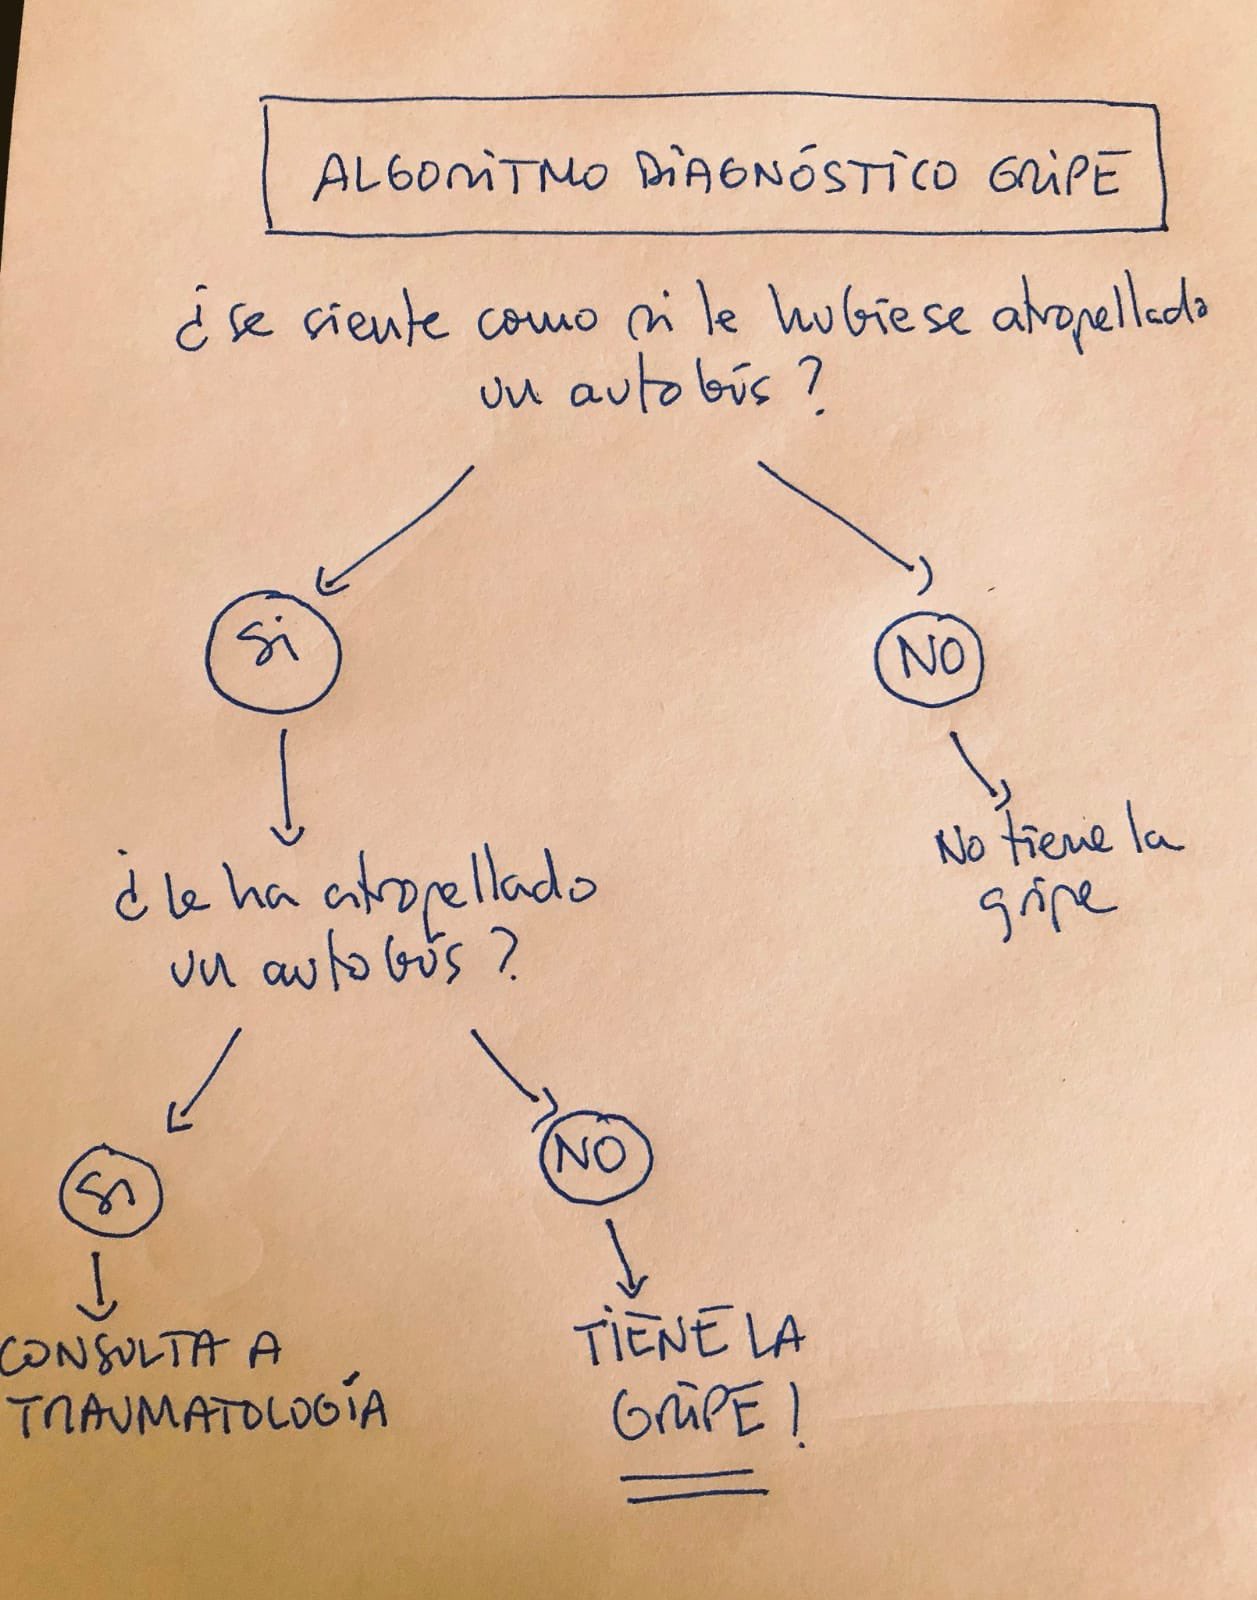 ALGORITMO DIAGNÓSTICO GRIPE
¿se siente como si le hubiese atropellado
un autobús?
Si
NO
¿Le ha atropellado
un autobús?
No tiene la
gripe
Si
NO
CONSULTA A
TRAUMATOLOGÍA
TIENE LA
GRIPE!